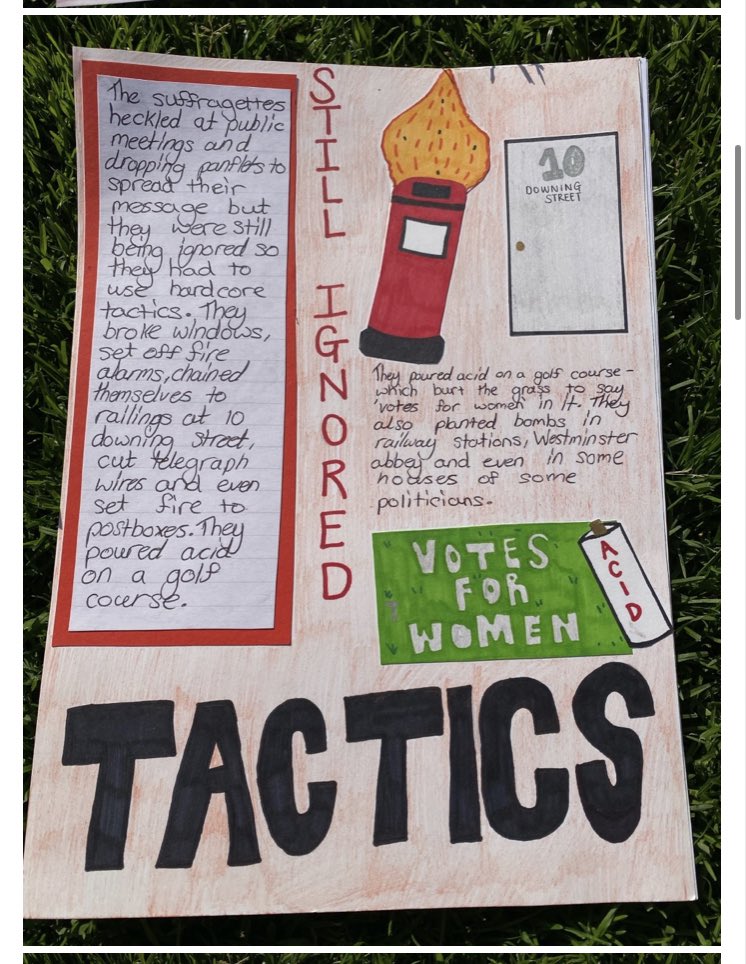 The suffragettes
heckled at public
meetings and
dropping panflets to
spread their
message but
they were still
being ignored so
they had to
use hardcore
tactics. They
broke windows,
set off fire
alarms, chained
themselves to
railings at 10
downing street,
cut telegraph
wires and even
set fire to
postboxes. They
poured acid
on a golf
course.
STILL IGNORED
10
DOWNING
STREET
They poured acid on a golf course -
which burt the grass to say
'votes for women' in it. They
also planted bombs in
railway stations, Westminster
abbey and even in some
houses of some
politicians.
VOTES
FOR
WOMEN
ACID
TACTICS